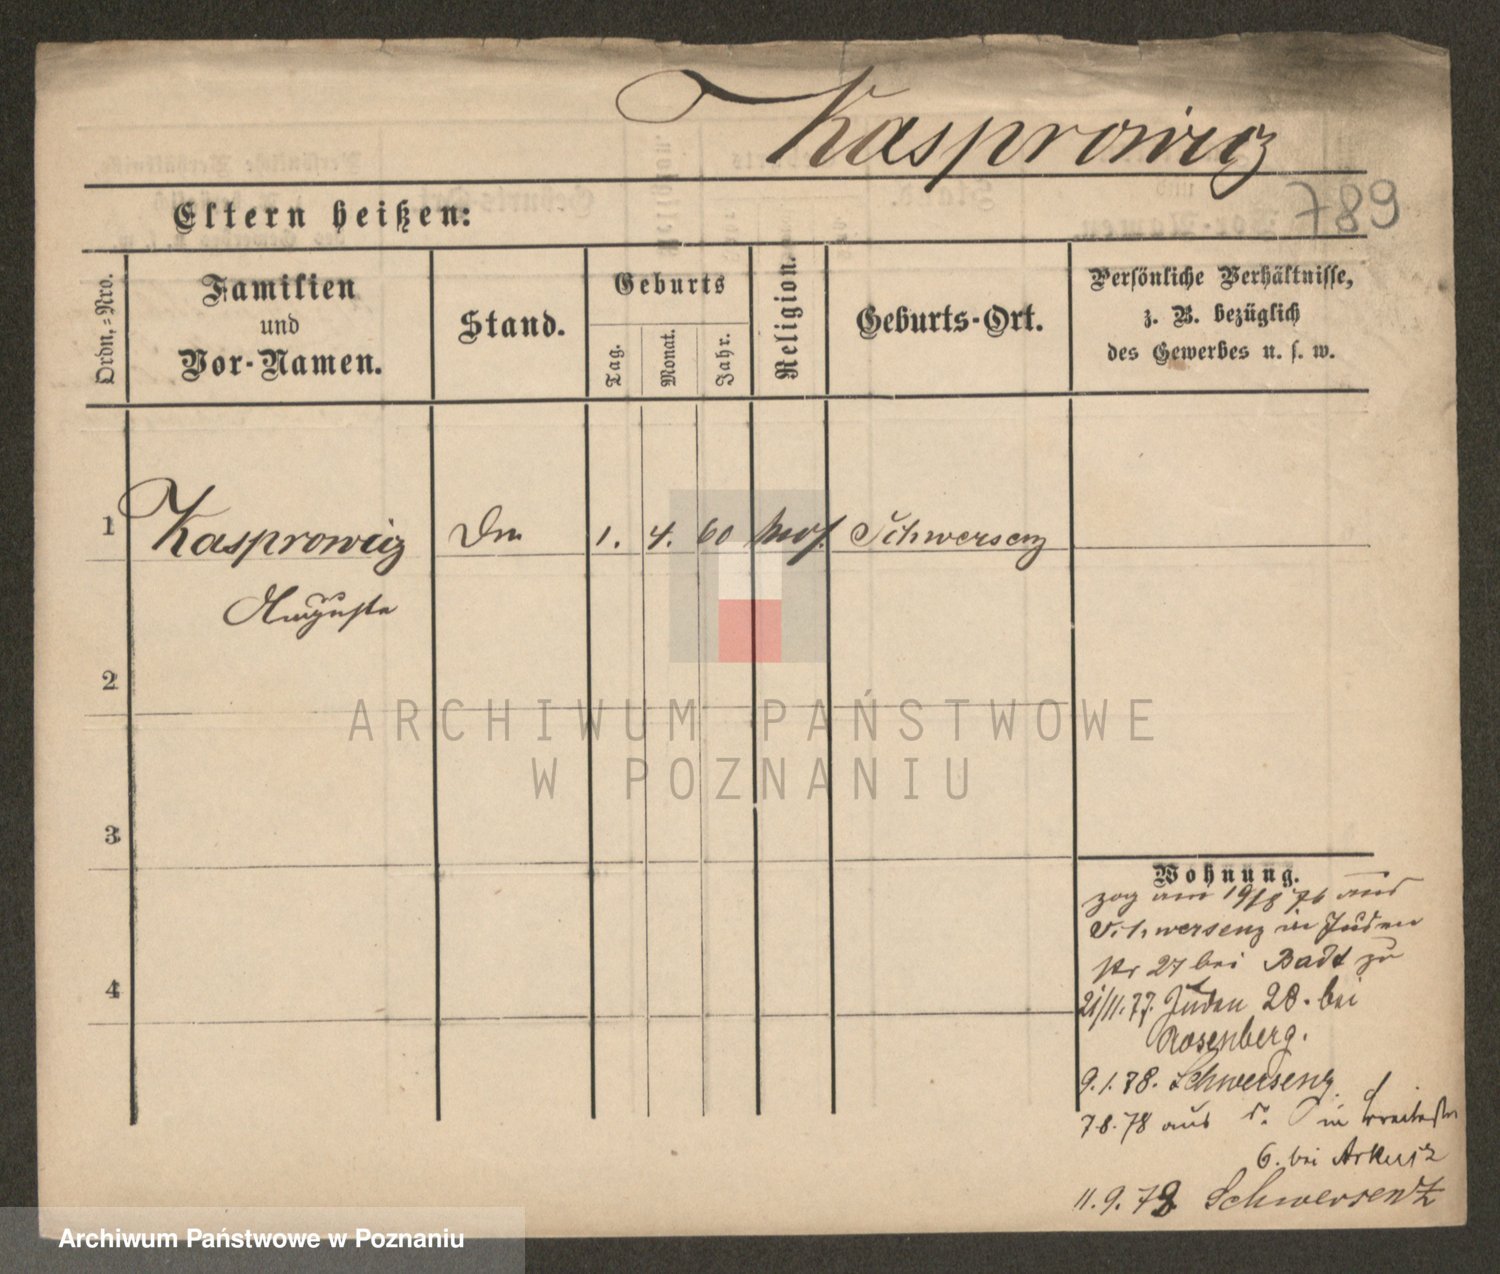 Kasprowicz
789
Eltern heißen:
Ordn.-Nro.
Familien
und
Vor-Namen.
Stand.
Geburts
Tag.
Monat.
Jahr.
Religion.
Geburts-Ort.
Persönliche Verhältnisse,
z. B. bezüglich
des Gewerbes u. s. w.
1 Kasprowicz 1. 4. 60 mos. Schwersenz
Auguste
2
3
4
ARCHIWUM PAŃSTWOWE
W POZNANIU
Wohnung.
zog am 19/8 76 aus
Schwersenz in Juden
str 27 bei Badt zu
21/11.77. Juden 28. bei
Rosenberg.
9.1.78. Schwersenz
7.8.78 aus in
6. bei
11.9.78 Schwersentz
Archiwum Państwowe w Poznaniu